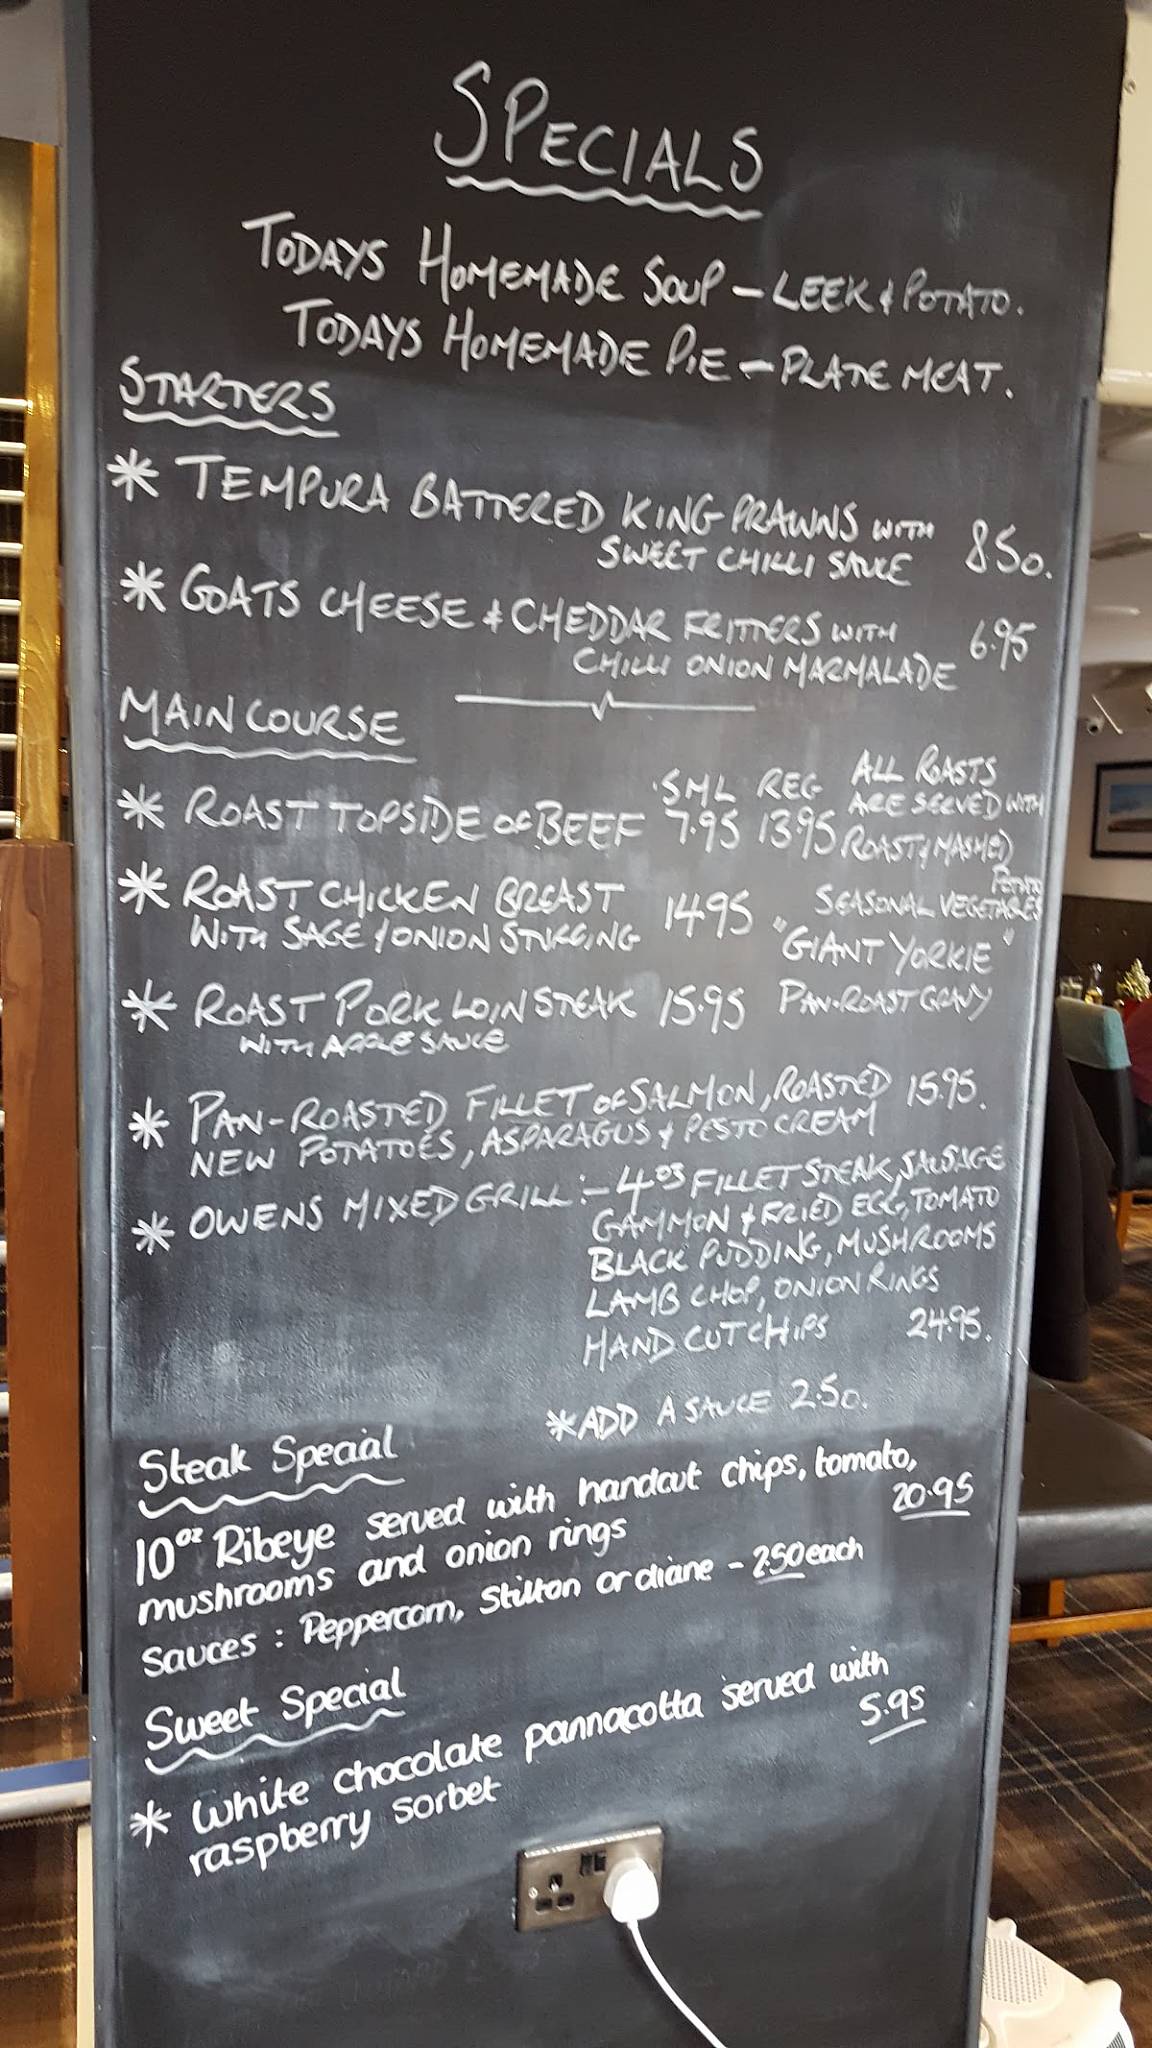 SPECIALS
TODAYS HOMEMADE SOUP - LEEK & POTATO.
TODAYS HOMEMADE PIE - PLATE MEAT.
STARTERS
* TEMPURA BATTERED KING PRAWNS WITH
SWEET CHILLI SAUCE 8.50.
* GOATS CHEESE & CHEDDAR FRITTERS WITH 6.95
CHILLI ONION MARMALADE
MAIN COURSE
SML REG
* ROAST TOPSIDE OF BEEF 7.95 13.95
ALL ROASTS
ARE SERVED WITH
ROAST & MASHED
POTATO
SEASONAL VEGETABLES
"GIANT YORKIE"
PAN-ROAST GRAVY
* ROAST CHICKEN BREAST 14.95
WITH SAGE & ONION STUFFING
* ROAST PORK LOIN STEAK 15.95
WITH APPLE SAUCE
* PAN-ROASTED FILLET OF SALMON, ROASTED 15.95.
NEW POTATOES, ASPARAGUS & PESTO CREAM
* OWENS MIXED GRILL :- 4oz FILLET STEAK, SAUSAGE
GAMMON & FRIED EGG, TOMATO
BLACK PUDDING, MUSHROOMS
LAMB CHOP, ONION RINGS
HAND CUT CHIPS 24.95.
* ADD A SAUCE 2.50.
Steak Special
10oz Ribeye served with handcut chips, tomato,
mushrooms and onion rings 20.95
Sauces : Peppercorn, Stilton or diane - 2.50 each
Sweet Special
* White chocolate pannacotta served with
raspberry sorbet 5.95